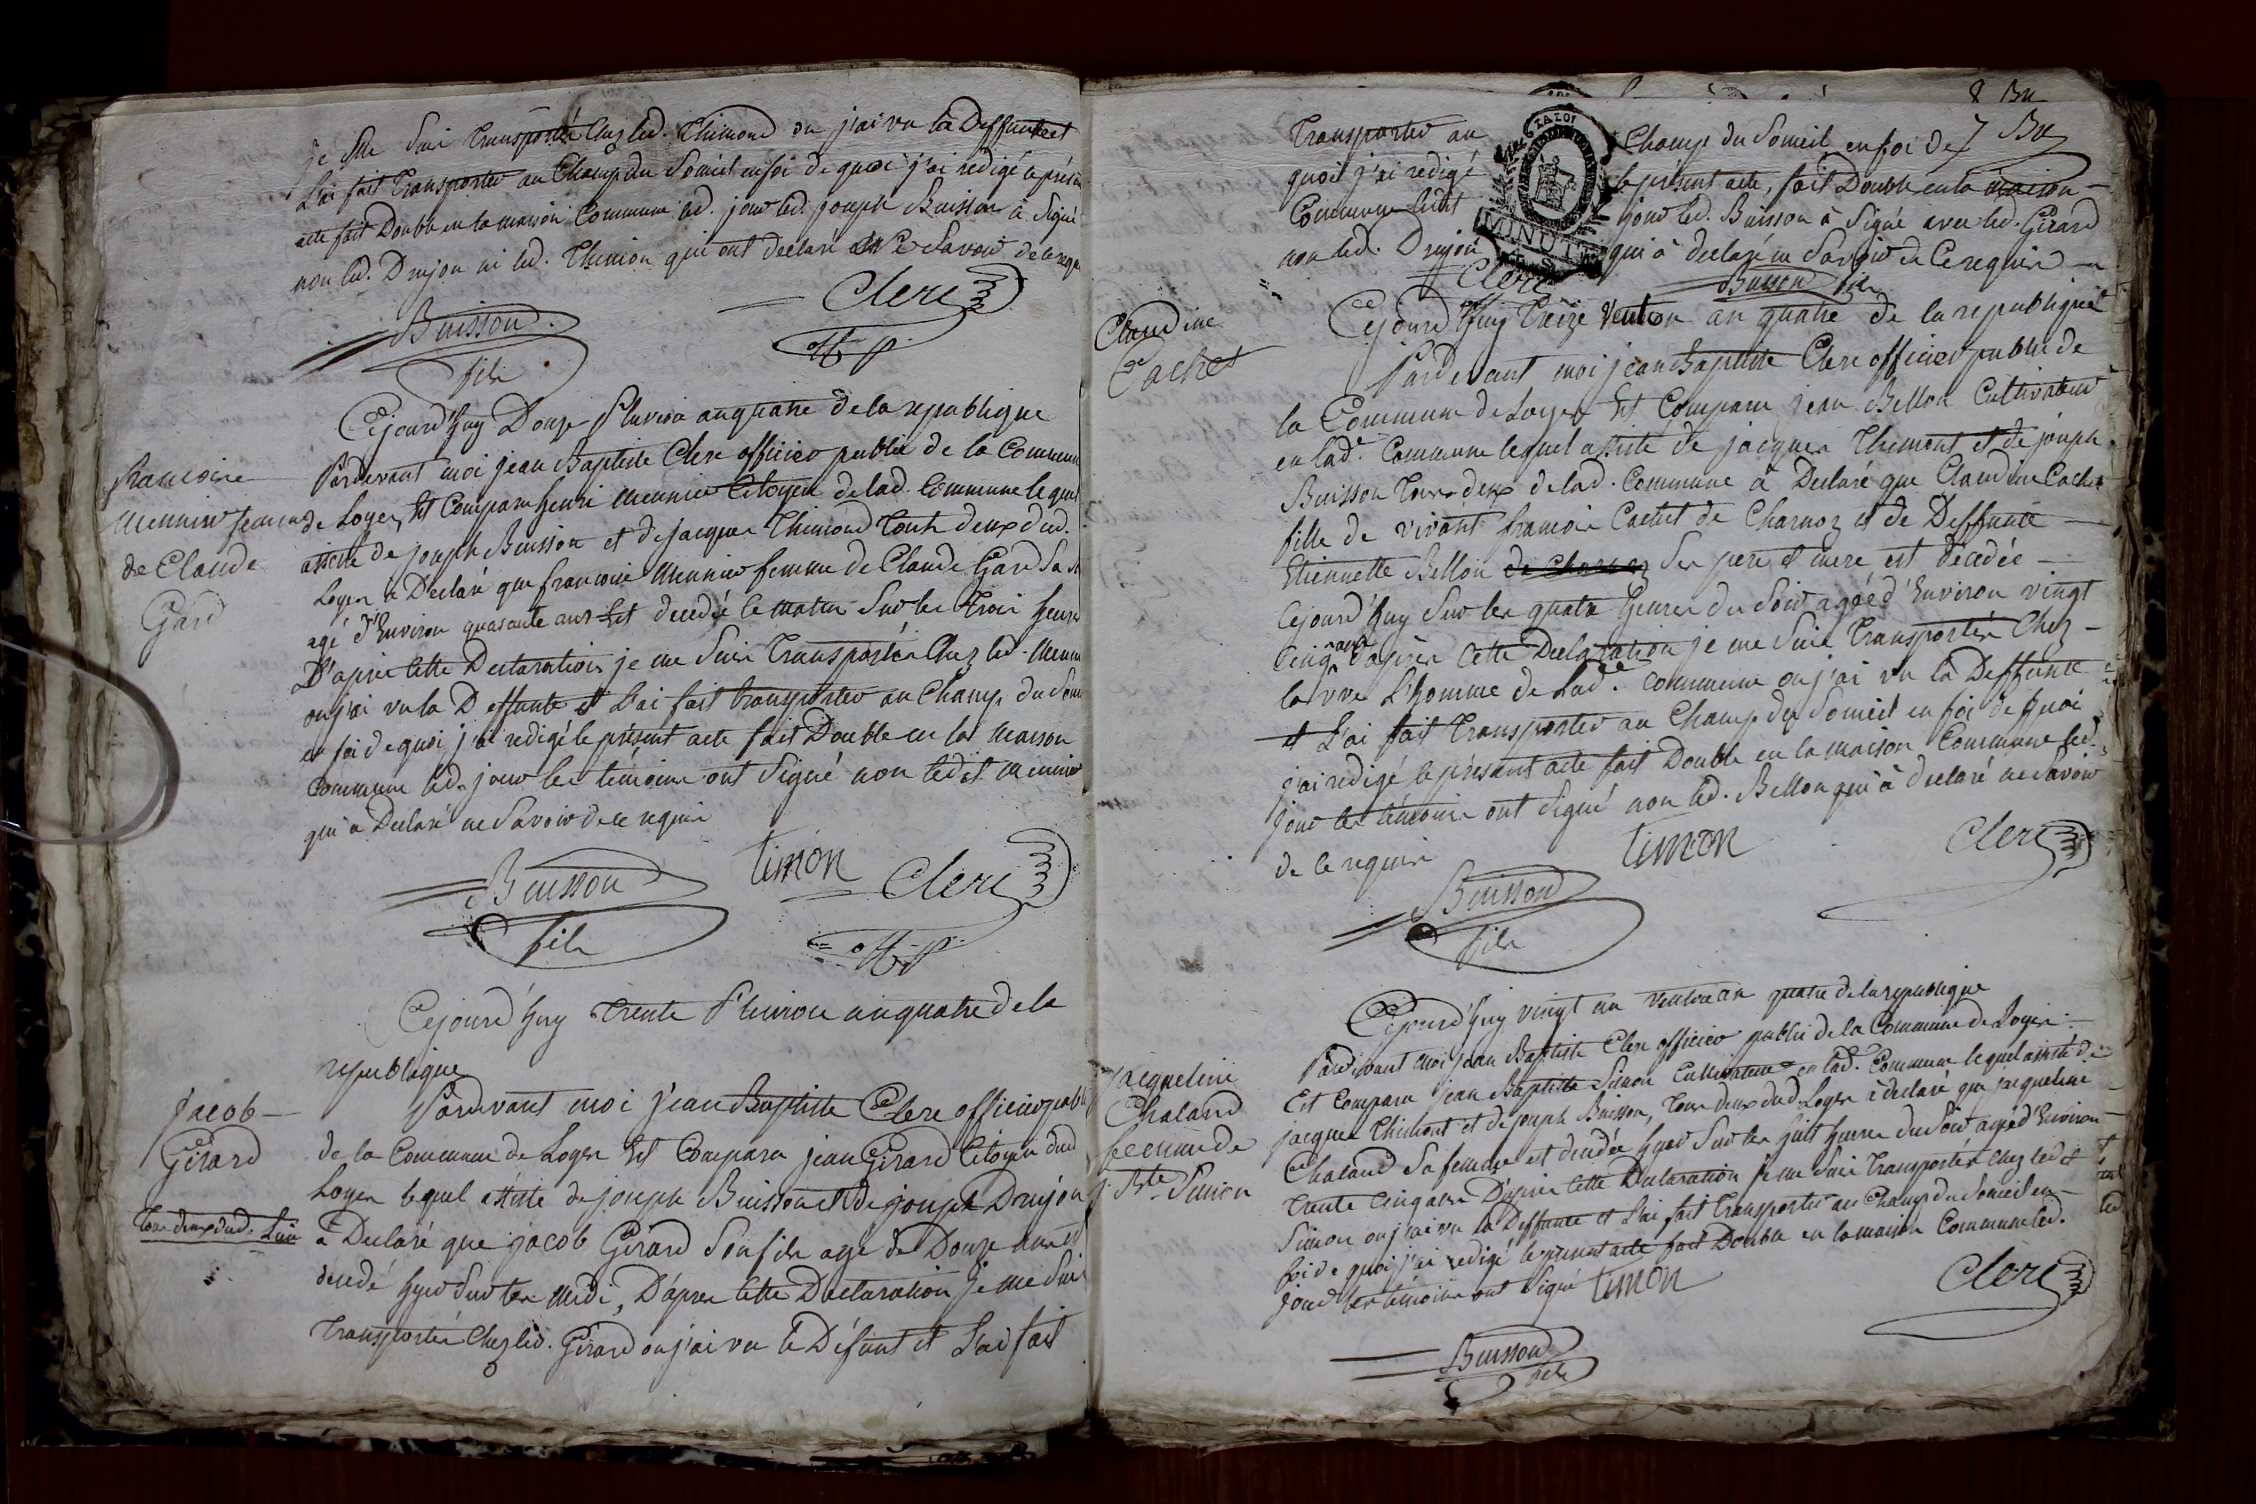 je me suis transporté chez led. Thimond ou j'ai vu la deffunte et
L'ai fait transporter au Champ du Someil en foi de quoi j'ai redigé le présent
acte fait Double en la maison Commune led. jour led. joseph Buisson a signé
non led. Drujon ni led. Thimon qui ont declaré ne savoir de ce requis
Clerc
Buisson
fils
Cejourd'huy Douze Pluviose an quatre de la republique
francoise
Meunier femme
de Claude
Gard
Pardevant moi jean Baptiste Clerc officier public de la Commune
de Loyes Est Comparu henri Meunier Citoyen de lad. Commune lequel
assisté de joseph Buisson et de jacques Thimond tout deux dud.
Loyes a Declaré que francoise Meunier femme de Claude Gard sa
agé d'Environ quarante ans Est decedée ce matin sur les trois heures
D'après cette Declaration je me suis transportés chez led. Meunier
ou j'ai vu la Deffunte et L'ai fait transporter au Champ du Someil
en foi de quoi j'ai redigé le présent acte fait Double en la maison
Commune led. jour les témoins ont signé non ledit Meunier
qui a Declaré ne savoir de ce requis
Buisson
fils
timon
Clerc
Cejourd'huy trente Pluviose an quatre de la
republique
jacob
Girard
Pardevant moi jean Baptiste Clerc officier public
de la Commune de Loyes Est Comparu jean Girard Citoyen dud.
Loyes lequel assisté de joseph Buisson et de joseph Drujon
tous deux dud. Lieu
à Declaré que jacob Girard son fils agé de Douze ans est
decedé hyer sur les midi, D'après cette Declaration je me suis
transportés chez led. Girard ou j'ai vu le Défunt et L'ai fait
8 Bu
7 Bu
transporter au Champ du Someil en foi de
quoi j'ai redigé le présent acte, fait Double en la maison
Commune ledit jour led. Buisson à signé avec led. Girard
non led. Drujon qui à declaré ne savoir de ce requis
MINUTE
Clerc
Buisson fils
Claudine
Cachet
Cejourd'huy treize Ventose an quatre de la republique
Pardevant moi jean Baptiste Clerc officier public de
la Commune de Loyes Est Comparu jean Bellon Cultivateur
en lad. Commune lequel assisté de jacques Thimont et de joseph
Buisson tous deux de lad. Commune à Declaré que Claudine Cachet
fille de vivant francois Cachet de Charnoz et de Deffunte
Etiennette Bellon de Charnoz ses pere et mere est decedée
Cejourd'huy sur les quatre heures du soir agéé d'Environ vingt
Cinq ans D'après cette Declaration je me suis transportés chez
la vve L'homme de lad. Commune ou j'ai vu la Deffunte
et L'ai fait transporter au Champ du Someil en foi de quoi
j'ai redigé le présent acte fait Double en la maison Commune led.
jour les témoins ont signé non led. Bellon qui à declaré ne savoir
de ce requis
timon
Clerc
Buisson
fils
Cejourd'huy vingt un ventose an quatre de la republique
jacqueline
Chaland
femme de
j. Bte. Simon
Pardevant moi jean Baptiste Clerc officier public de la Commune de Loyes
Est Comparu jean Baptiste Simon Cultivateur en lad. Commune lequel assisté de
jacques Thimont et de joseph Buisson, tous deux dud. Loyes à declaré que jacqueline
Chaland sa femme est decedée hyer sur les huit heures du soir agéé d'Environ
trente Cinq ans D'après cette Declaration je me suis transportés chez ledit
Simon ou j'ai vu la Deffunte et L'ai fait transporter au Champ du Someil en
foi de quoi j'ai redigé le présent acte fait Double en la maison Commune led.
jour les témoins ont signé timon
Clerc
Buisson
fils